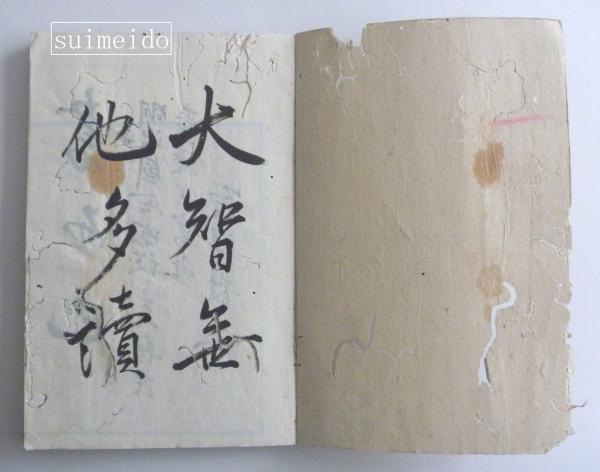 suimeido
大智無
他多讀